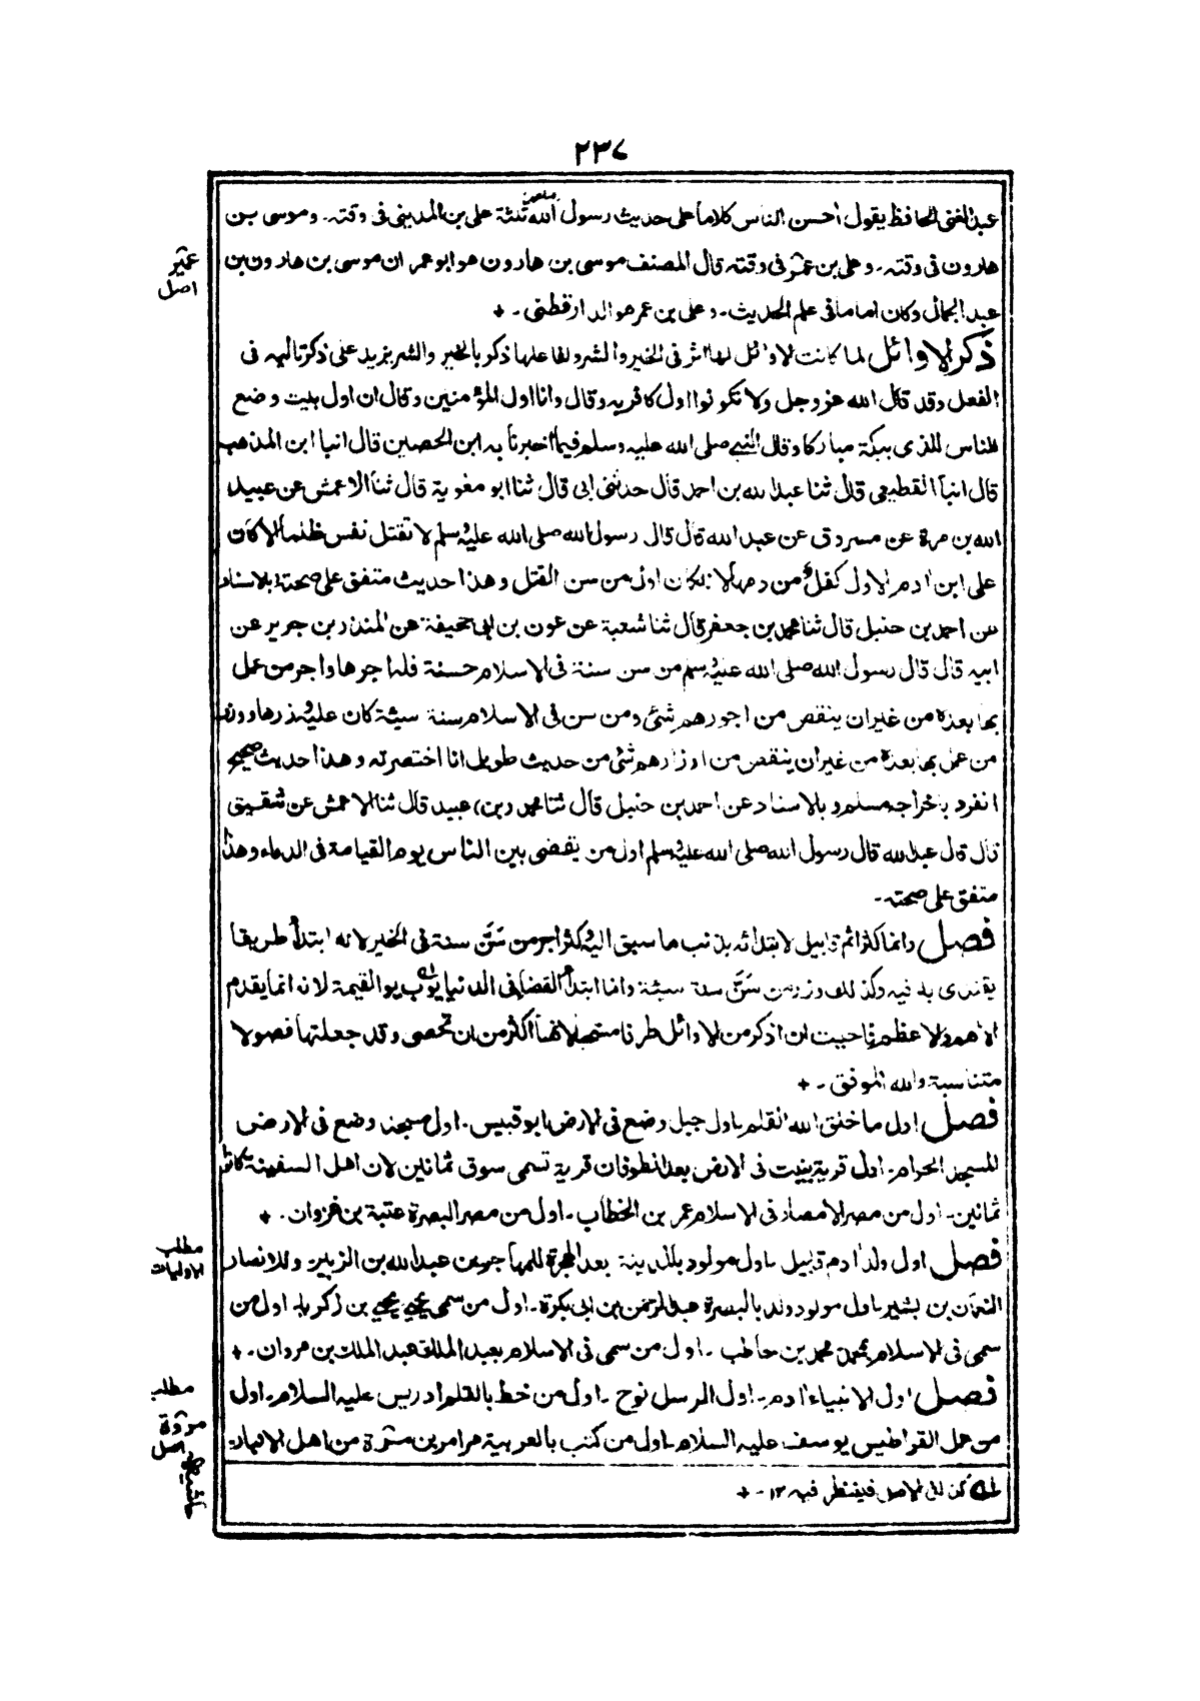 ٢٣٧
عبد الغنى الحافظ يقول احسن الناس كلاما على حديث رسول الله ثلثة على بن المدينى فى وقته۔ وموسى بن
هارون فى وقته۔ وعلى بن عمر فى وقته قال المصنف موسى بن هارون هو ابو عمران موسى بن هارون بن
عبد الجمال وكان اماما فى علم الحديث۔ وعلى بن عمر هو الدارقطنى۔ +
ذكر الاوائل لما كانت الاوائل لها اثر فى الخير والشر ولفاعلها ذكر بالخير والشر يزيد على ذكر تاليه فى
الفعل وقد قال الله عز وجل ولا تكونوا اول كافر به وقال وانا اول المؤمنين وقال ان اول بيت وضع
للناس للذى ببكة مباركا وقال النبى صلى الله عليه وسلم فيما اخبرنا به ابن الحصين قال انبا ابن المذهب
قال انبا القطيعى قال ثنا عبد الله بن احمد قال حدثنى ابى قال ثنا ابو معوية قال ثنا الاعمش عن عبيد
الله بن مرة عن مسروق عن عبد الله قال قال رسول الله صلى الله عليه وسلم لا تقتل نفس ظلما الا كان
على ابن ادم الاول كفل من دمها لانه كان اول من سن القتل وهذا حديث متفق على صحته وبالاسناد
عن احمد بن حنبل قال ثنا محمد بن جعفر قال ثنا شعبة عن عون بن ابى جحيفة عن المنذر بن جرير عن
ابيه قال قال رسول الله صلى الله عليه وسلم من سن سنة فى الاسلام حسنة فله اجرها واجر من عمل
بها بعده من غير ان ينقص من اجورهم شئ ومن سن فى الاسلام سنة سيئة كان عليه وزرها ووزر
من عمل بها بعده من غير ان ينقص من اوزارهم شئ من حديث طويل انا اختصرته وهذا حديث صحيح
انفرد باخراجه مسلم وبالاسناد عن احمد بن حنبل قال ثنا محمد (بن) عبيد قال ثنا الاعمش عن شقيق
قال قال عبد الله قال رسول الله صلى الله عليه وسلم اول من يقضى بين الناس يوم القيامة فى الدماء وهذا
متفق على صحته۔
فصل وانما كثر اثم قابيل لابتدائه بذنب ما سبق اليه وكثر اجر من سَنَّ سنة فى الخير لانه ابتدأ طريقا
يقتدى به فيه وكذلك وزر من سَنَّ سنة سيئة وانما ابتدأ القضا فى الدنيا يوم القيمة لانه انما يقدم
الاهم والاعظم فاحببت ان اذكر من الاوائل طرفا مستعجلا لانها اكثر من ان تحصى وقد جعلتها فصولا
متناسبة والله الموفق۔ +
فصل اول ما خلق الله القلم۔ اول جبل وضع فى الارض ابو قبيس۔ اول مسجد وضع فى الارض
المسجد الحرام۔ اول قرية بنيت فى الارض بعد الطوفان قرية تسمى سوق ثمانين لان اهل السفينة كانوا
ثمانين۔ اول من مصر الامصار فى الاسلام عمر بن الخطاب۔ اول من مصر البصرة عتبة بن غزوان۔ +
فصل اول ولد ادم قابيل۔ اول مولود بالمدينة بعد الهجرة للمهاجرين عبد الله بن الزبير وللانصار
النعمان بن بشير۔ اول مولود ولد بالبصرة عبد الرحمن بن ابى بكرة۔ اول من سمى يحيى يحيى بن زكريا۔ اول من
سمى فى الاسلام بمحمد محمد بن حاطب۔ اول من سمى فى الاسلام بعبد الملك عبد الملك بن مروان۔ +
فصل اول الانبياء ادم۔ اول الرسل نوح۔ اول من خط بالقلم ادريس عليه السلام۔ اول
من عمل القراطيس يوسف عليه السلام۔ اول من كتب بالعربية مرامر بن مرة من اهل الانبار۔
كذا فى الاصل فينظر فيه ١٢۔ +
اصل
مطلب
الاوليات
مطلب
مروة
اصل